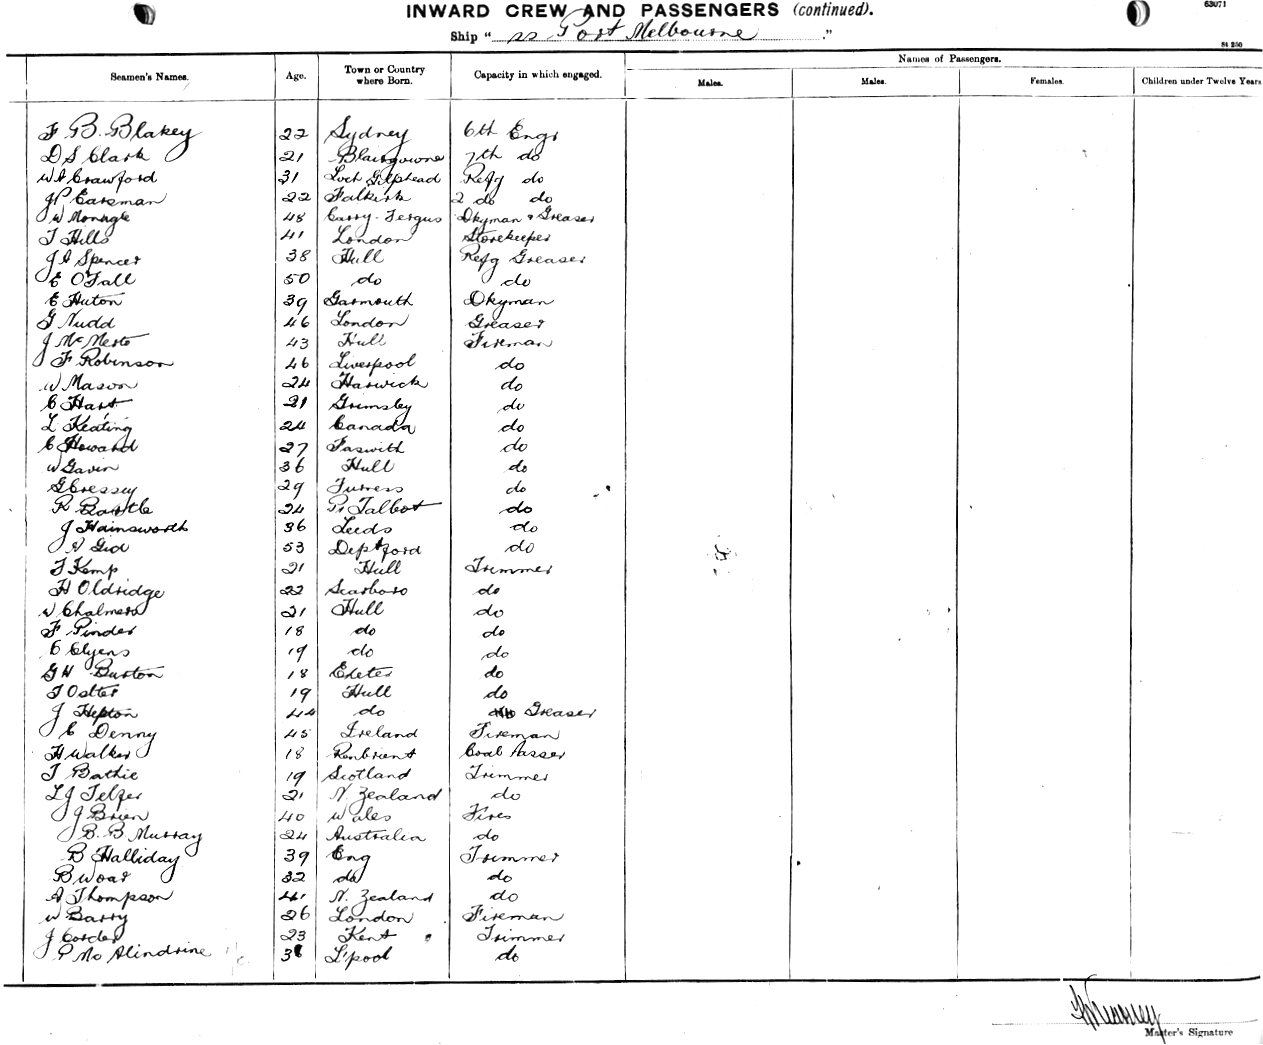 INWARD CREW AND PASSENGERS (continued).
63071
Ship "ss Port Melbourne"
St 250
Seamen's Names. Age. Town or Country where Born. Capacity in which engaged. Names of Passengers.
Males. Males. Females. Children under Twelve Years
F B. Blakey 22 Sydney 6th Engr
D S Clark 21 Blairgowrie 7th do
W A Crawford 31 Loch Gilphead Refg do
J P Eareman 22 Falkirk 2 do do
W Monagle 48 Carry-Fergus Dkyman & Greaser
T Hills 41 London Storekeeper
J A Spencer 38 Hull Refg Greaser
E O'Fall 50 do do
E Huton 39 Garmouth Dkyman
G Nudd 46 London Greaser
J McMerto 43 Hull Fireman
F Robinson 46 Liverpool do
W Mason 24 Harwick do
C Hart 21 Grimsby do
L Keating 24 Canada do
C Howard 27 do
W Gavin 36 Hull do
G Cressey 29 Furress do
R Bartle 24 Pt Talbot do
J Hainsworth 36 Leeds do
A Gid 53 Deptford do
T Kemp 21 Hull Trimmer
H Oldridge 22 Scarboro do
W Chalmers 21 Hull do
F Pinder 18 do do
C Clyens 19 do do
G H Burton 18 Exeter do
T Oster 19 Hull do
J Hepton 44 do Greaser
C Denny 45 Ireland Fireman
H Walker 18 Coal Passer
T Bathie 19 Scotland Trimmer
L J Telfer 21 N. Zealand do
J Brien 40 Wales Fires
J B. B Murray 24 Australia do
B Halliday 39 Eng Trimmer
B Woar 32 do do
A Thompson 41 N. Zealand do
W Barry 26 London Fireman
J Corder 23 Kent Trimmer
P Mc Alindrine 3 L'pool do
Master's Signature